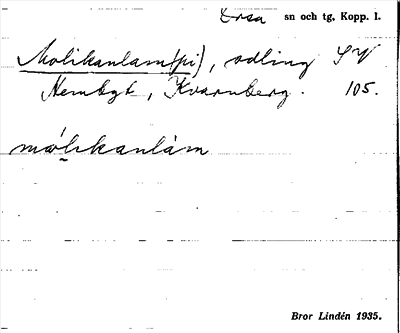 Orsa sn och tg, Kopp. l.
Molikanlam(pi), odling SV
Hembygt, Kvarnberg. 105.
mòlikanlàm
Bror Lindén 1935.